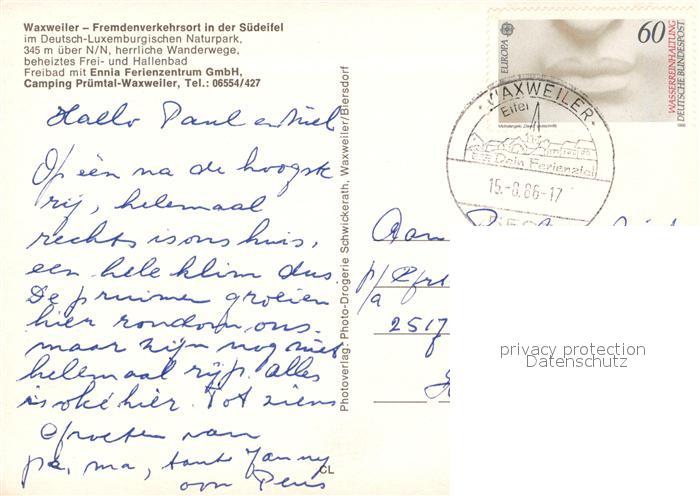 Waxweiler – Fremdenverkehrsort in der Südeifel
im Deutsch-Luxemburgischen Naturpark,
345 m über N/N, herrliche Wanderwege,
beheiztes Frei- und Hallenbad
Freibad mit Ennia Ferienzentrum GmbH,
Camping Prümtal-Waxweiler, Tel.: 06554/427
Hallo Paul en
Op één na de hoogste
rij, helemaal
rechts is ons huis,
een hele klim dus.
De pruimen groeien
hier rondom ons.
maar zijn nog niet
helemaal rijp. alles
is oké hier. Tot ziens
groeten van
pa, ma, tante Fanny
oom
CL
Photoverlag: Photo-Drogerie Schwickerath, Waxweiler/Biersdorf
EUROPA
60
WASSERREINHALTUNG
DEUTSCHE BUNDESPOST
WAXWEILER
Eifel
Dein Ferienziel
15.-8.86-17
Aan
p/a
2517
privacy protection
Datenschutz